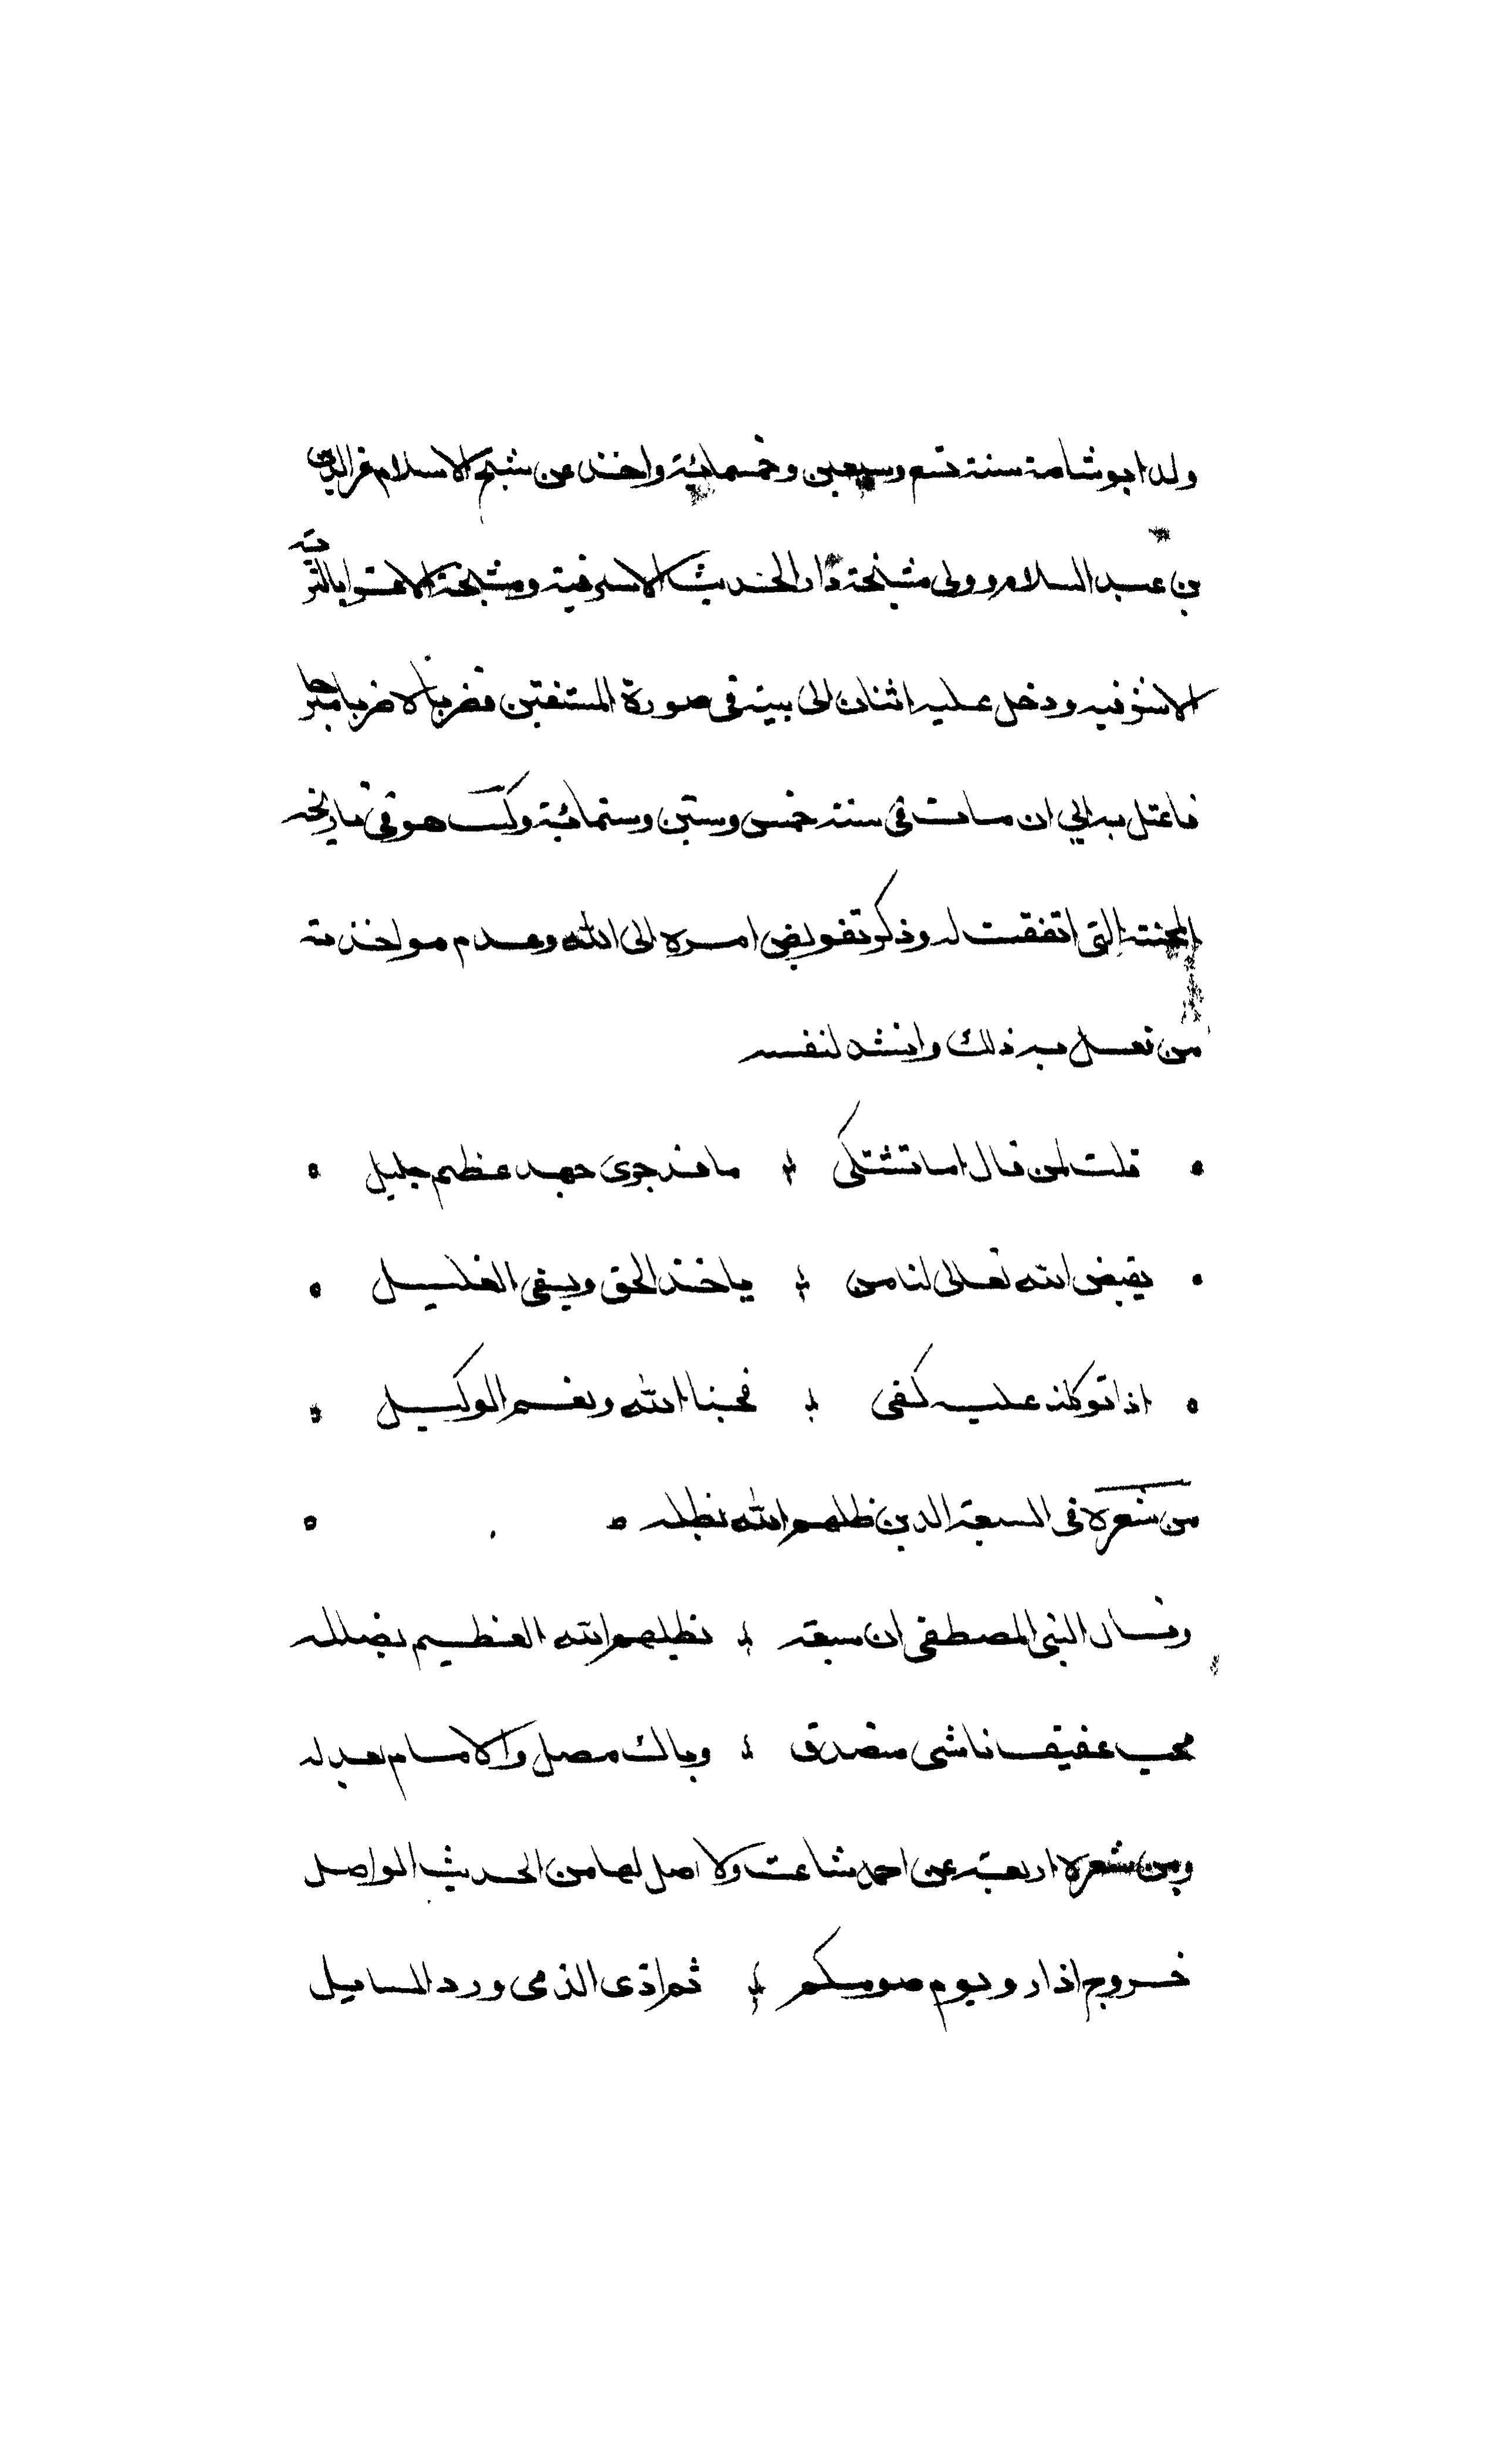 ولد ابو شامة سنة تسع وسبعين وخمسمائة واخذ عن شيخ الاسلام عز الدين
بن عبد السلام وولى مشيخة دار الحديث الاسرفية ومشيخة الاقرا بالتربة
الاشرفيه ودخل عليه اثنان الى بيته فى صورة المستفتين فضرباه ضربا مبرحا
فاعتل به الي ان مات فى سنة خمس وستين وستمائة وكتب هو فى تاريخه
المحنة التى اتفقت له وذكر تفويض امره الى الله وعدم مواخذته
من فعل به ذلك وانشد لنفسه
قلت لمن قال اما تشتكى ما قد جرى فهو عظيم جليل
يقيض الله تعالى لنا من ياخذ الحق ويشفى الغليل
اذا توكلنا عليه كفى فحسبنا الله ونعم الوكيل
من شعره فى السبعة الذين يظلهم الله بظله
وقال النبى المصطفى ان سبعة يظلهم الله العظيم بظله
محب عفيف ناشى متصدق وباك مصل والامام بعدله
ومن شعره اربعة عن احمد شاعت ولا اصل لها من الحديث الواصل
خروج اذار ويوم صومكم ثم اذى الذمى ورد السايل